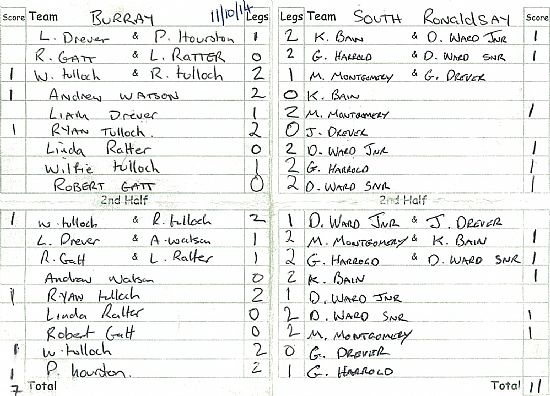 Score Team BURRAY 11/10/14 Legs Legs Team SOUTH RONALDSAY Score
L. Drever & P. Hourston 1 2 K. BAIN & D. WARD JNR 1
R. GATT & L. RATTER 0 2 G. HARROLD & D. WARD SNR 1
1 W. tulloch & R. tulloch 2 1 M. MONTGOMERY & G. DREVER
1 ANDREW WATSON 2 0 K. BAIN
LIAM Drever 0 2 M. MONTGOMERY 1
1 RYAN Tulloch. 2 0 J. DREVER
Linda Ratter 0 2 D. WARD JNR 1
Wilfie tulloch 1 2 G. HARROLD 1
ROBERT GATT 0 2 D. WARD SNR 1
2nd Half 2nd Half
1 W. tulloch & R. tulloch 2 1 D. WARD JNR & J. DREVER
L. Drever & A. watson 1 2 M. MONTGOMERY & K. BAIN 1
R. Gatt & L. Ratter 1 2 G. HARROLD & D WARD SNR 1
Andrew Watson 0 2 K. BAIN 1
1 RYAN tulloch 2 1 D. WARD JNR
Linda Ratter 0 2 D. WARD SNR 1
Robert Gatt 0 2 M. MONTGOMERY 1
1 W. tulloch 2 0 G. DREVER
1 P. hourston. 2 1 G. HARROLD
7 Total Total 11